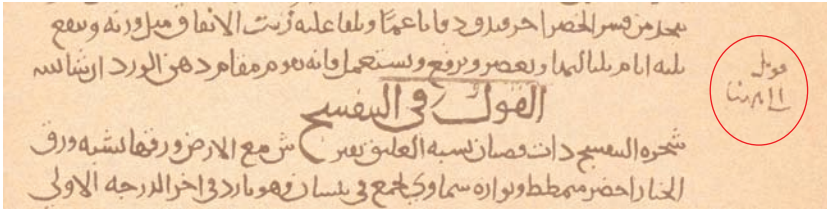 من قشر ويدق دقا ناعما ويلقا عليه زيت الانفاق مثل وزنه وينقع
ثلثه ايام بلياليها ويعصر ويرفع ويستعمل فانه يقوم مقام دهن الورد ان شا الله
القول في البنفسج
شجره البنفسج ذات قضبان تشبه العليق تفترش مع الارض ورقها يشبه ورق
الخيار اخضر ونواره سماوي يجمع في نيسان وهو بارد في اخر الدرجه الاولي
قوبل
الى هنا